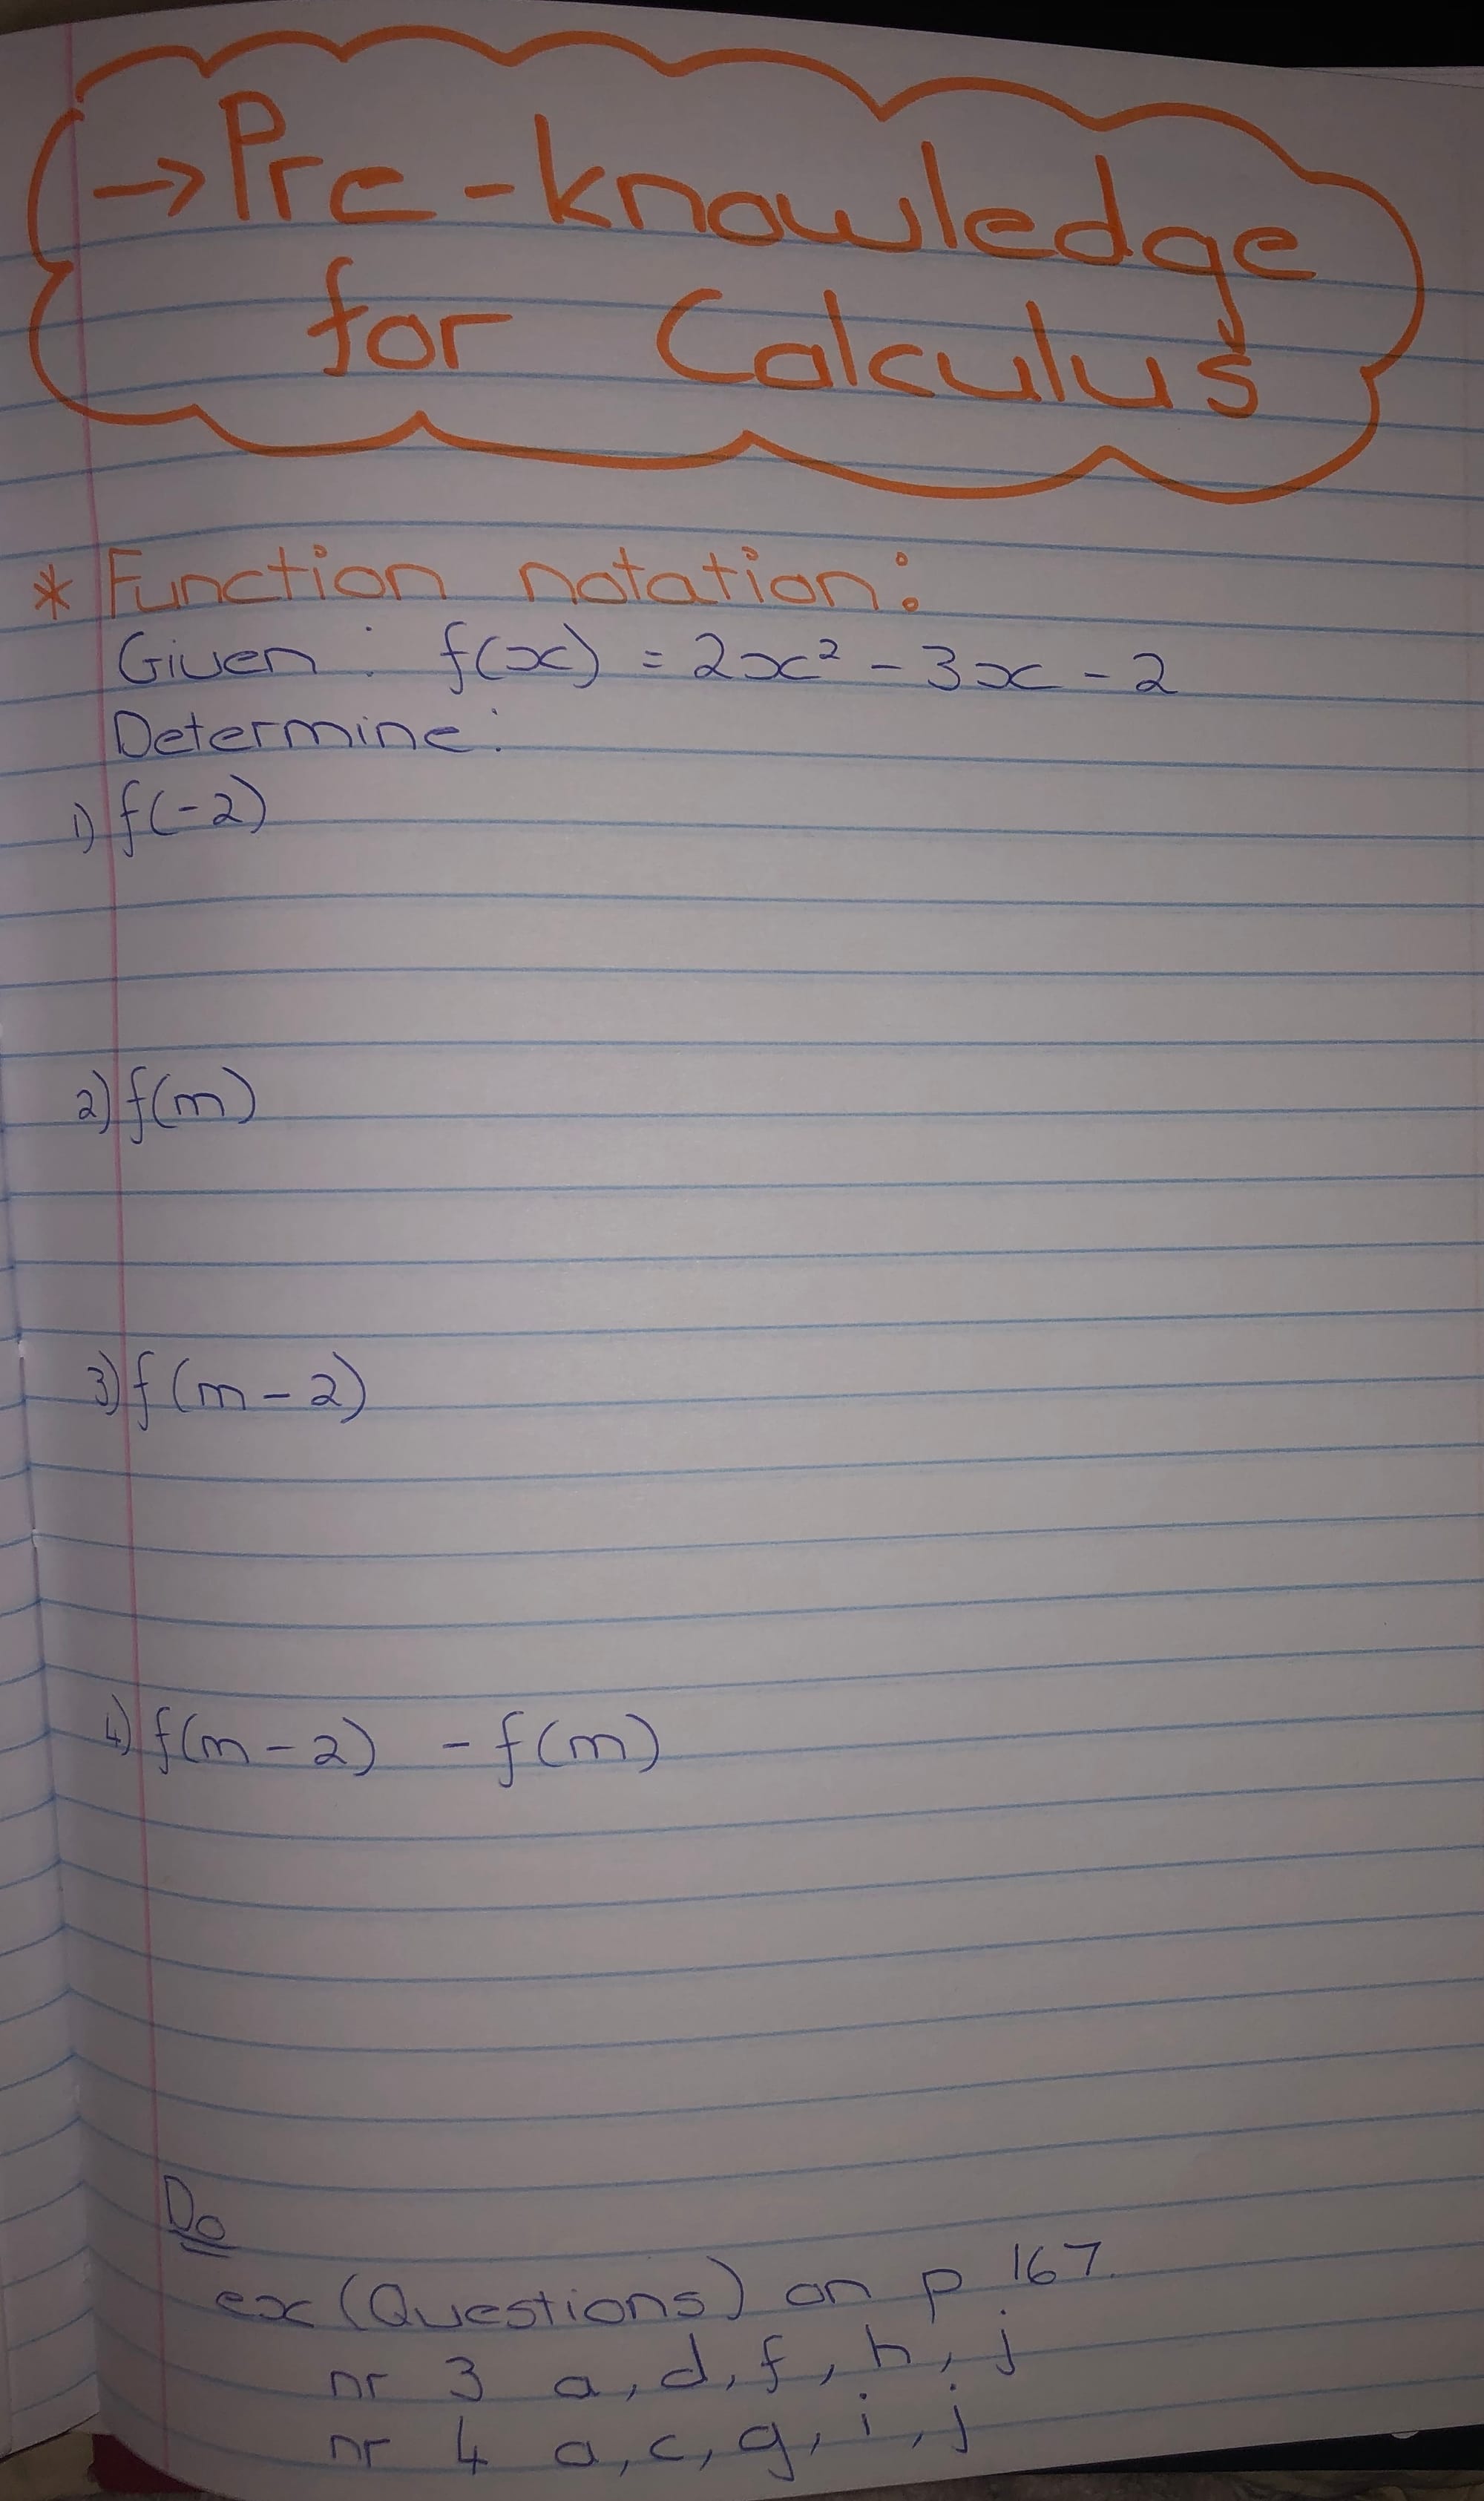 →Pre-knowledge
for Calculus
* Function notation:
Given : f(x) = 2x² - 3x - 2
Determine:
1) f(-2)
2) f(m)
3) f(m-2)
4) f(m-2) - f(m)
Do
ex (Questions) on p 167.
nr 3 a, d, f, h, j
nr 4 a, c, g, i, j